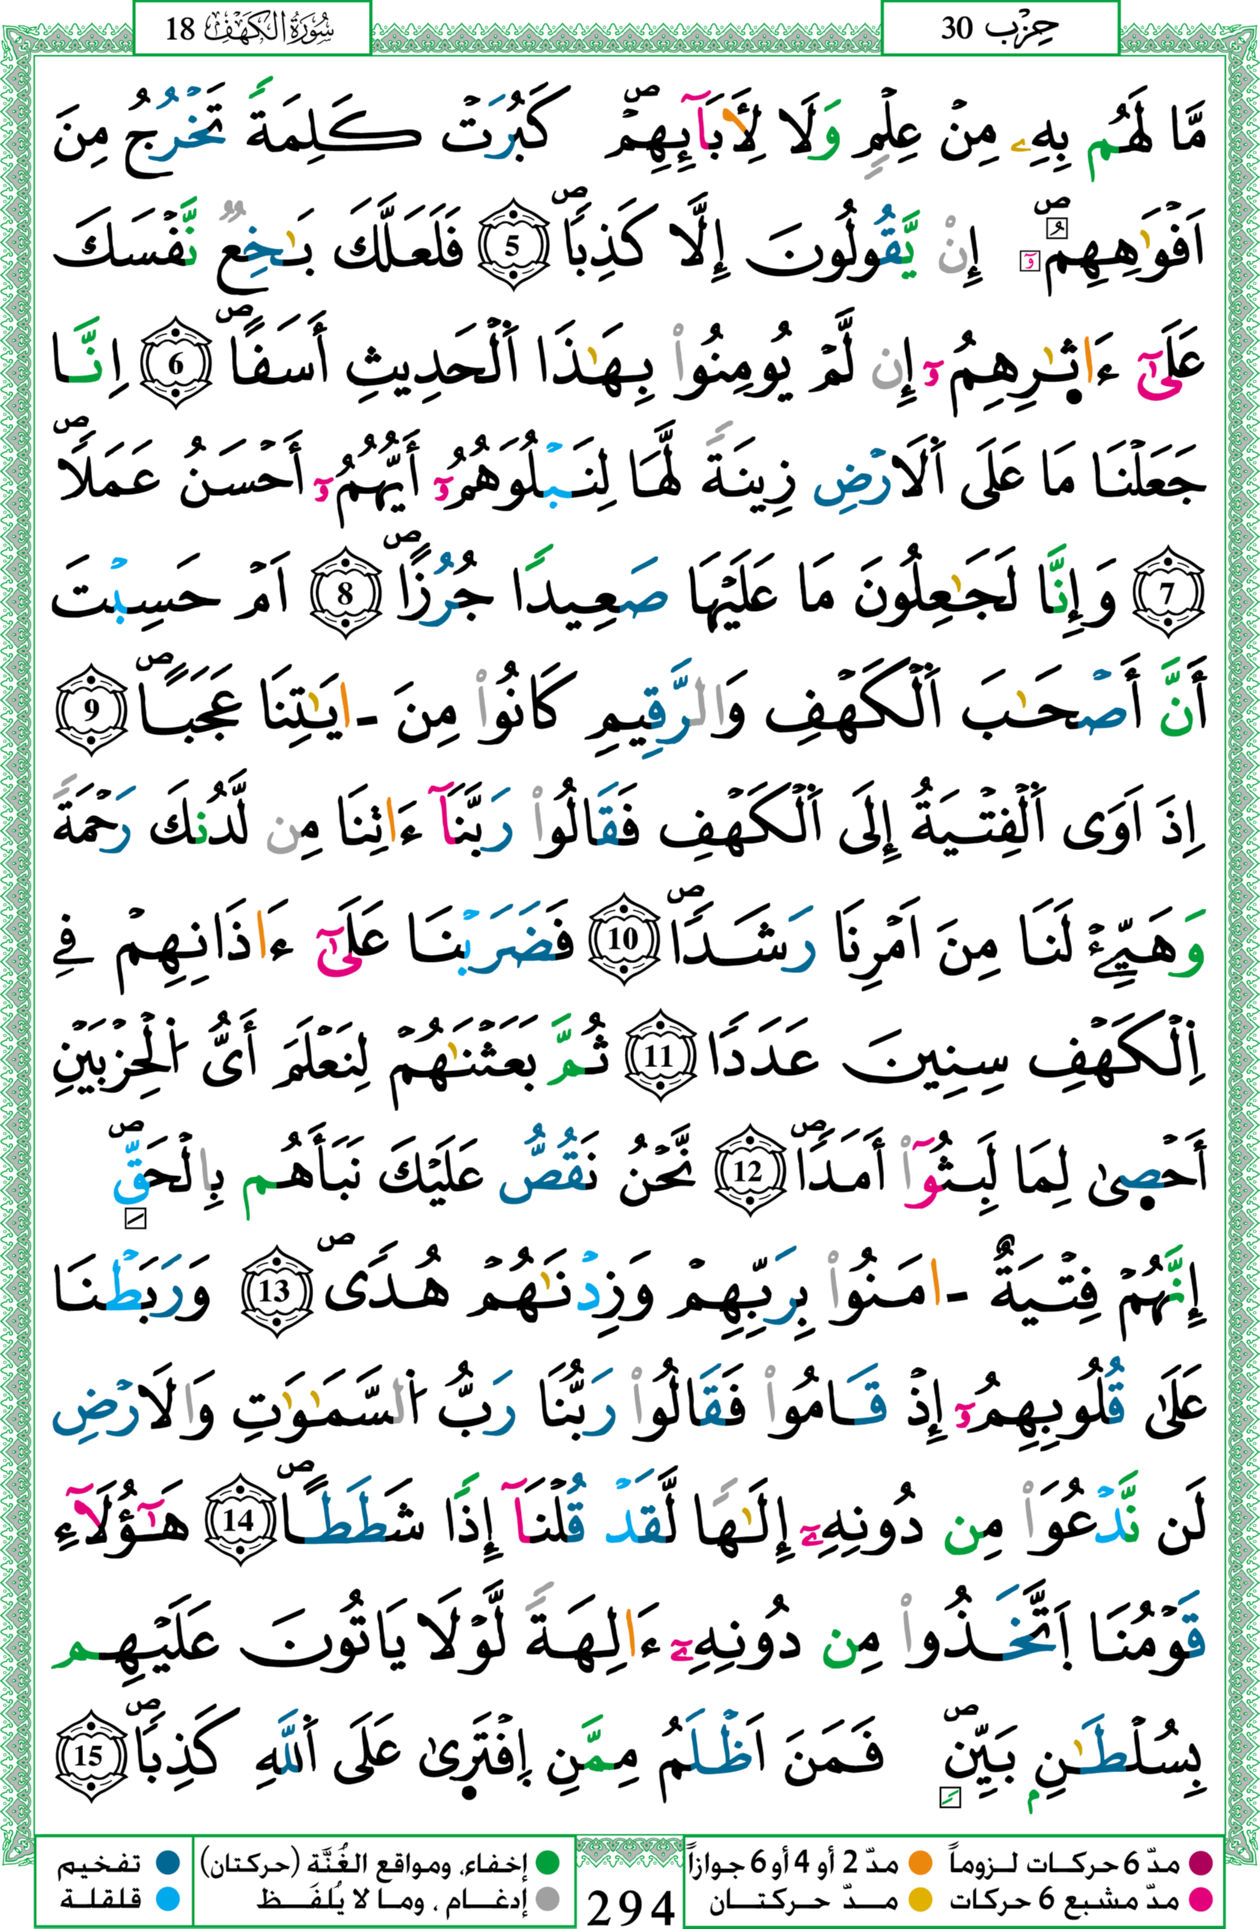 حِزْب 30
سُورَةُ الكَهْفِ 18
مَّا لَهُم بِهِۦ مِنْ عِلْمٍ وَلَا لِأَبَآئِهِمْ ۖ كَبُرَتْ كَلِمَةً تَخْرُجُ مِنَ
اَفْوَٰهِهِمْ ۖ إِنْ يَّقُولُونَ إِلَّا كَذِبًا ۖ 5 فَلَعَلَّكَ بَٰخِعٌ نَّفْسَكَ
عَلَىٰٓ ءَاثٰ۪رِهِمُۥٓ إِن لَّمْ يُومِنُواْ بِهَٰذَا اَ۬لْحَدِيثِ أَسَفًا ۖ 6 اِنَّا
جَعَلْنَا مَا عَلَى اَ۬لَارْضِ زِينَةً لَّهَا لِنَبْلُوَهُمُۥٓ أَيُّهُمُۥٓ أَحْسَنُ عَمَلًا ۖ
7 وَإِنَّا لَجَٰعِلُونَ مَا عَلَيْهَا صَعِيدًا جُرُزًا ۖ 8 اَمْ حَسِبْتَ
أَنَّ أَصْحَٰبَ اَ۬لْكَهْفِ وَالرَّقِيمِ كَانُواْ مِنَ ـ ايَٰتِنَا عَجَبًا ۖ 9
اِذَ اَوَى اَ۬لْفِتْيَةُ إِلَى اَ۬لْكَهْفِ فَقَالُواْ رَبَّنَآ ءَاتِنَا مِن لَّدُنكَ رَحْمَةً
وَهَيِّۓْ لَنَا مِنَ اَمْرِنَا رَشَدًا ۖ 10 فَضَرَبْنَا عَلَىٰٓ ءَاذَانِهِمْ فِے
اِ۬لْكَهْفِ سِنِينَ عَدَدًا 11 ثُمَّ بَعَثْنَٰهُمْ لِنَعْلَمَ أَىُّ اُ۬لْحِزْبَيْنِ
أَحْص۪ىٰ لِمَا لَبِثُوٓاْ أَمَدًا ۖ 12 نَّحْنُ نَقُصُّ عَلَيْكَ نَبَأَهُم بِالْحَقِّ ۖ
إِنَّهُمْ فِتْيَةٌ ـ امَنُواْ بِرَبِّهِمْ وَزِدْنَٰهُمْ هُدًى ۖ 13 وَرَبَطْنَا
عَلَىٰ قُلُوبِهِمُۥٓ إِذْ قَامُواْ فَقَالُواْ رَبُّنَا رَبُّ اُ۬لسَّمَٰوَٰتِ وَالَارْضِ
لَن نَّدْعُوَاْ مِن دُونِهِۦٓ إِلَٰهًا لَّقَدْ قُلْنَآ إِذًا شَطَطًا ۖ 14 هَٰٓؤُلَآءِ
قَوْمُنَا اَ۪تَّخَذُواْ مِن دُونِهِۦٓ ءَالِهَةً لَّوْلَا يَاتُونَ عَلَيْهِم
بِسُلْطَٰنِۭ بَيِّنٍ ۖ فَمَنَ اَظْلَمُ مِمَّنِ اِ۪فْتَر۪ىٰ عَلَى اَ۬للَّهِ كَذِبًا ۖ 15
مدّ 6 حركات لـزوماً
مدّ 2 أو 4 أو 6 جوازاً
إخفاء، ومواقع الغُنَّة (حركتان)
تفخيم
مدّ مشبع 6 حركات
مـدّ حـركتـان
إدغـام ، ومـا لا يُلفَـظ
قلقلة
294